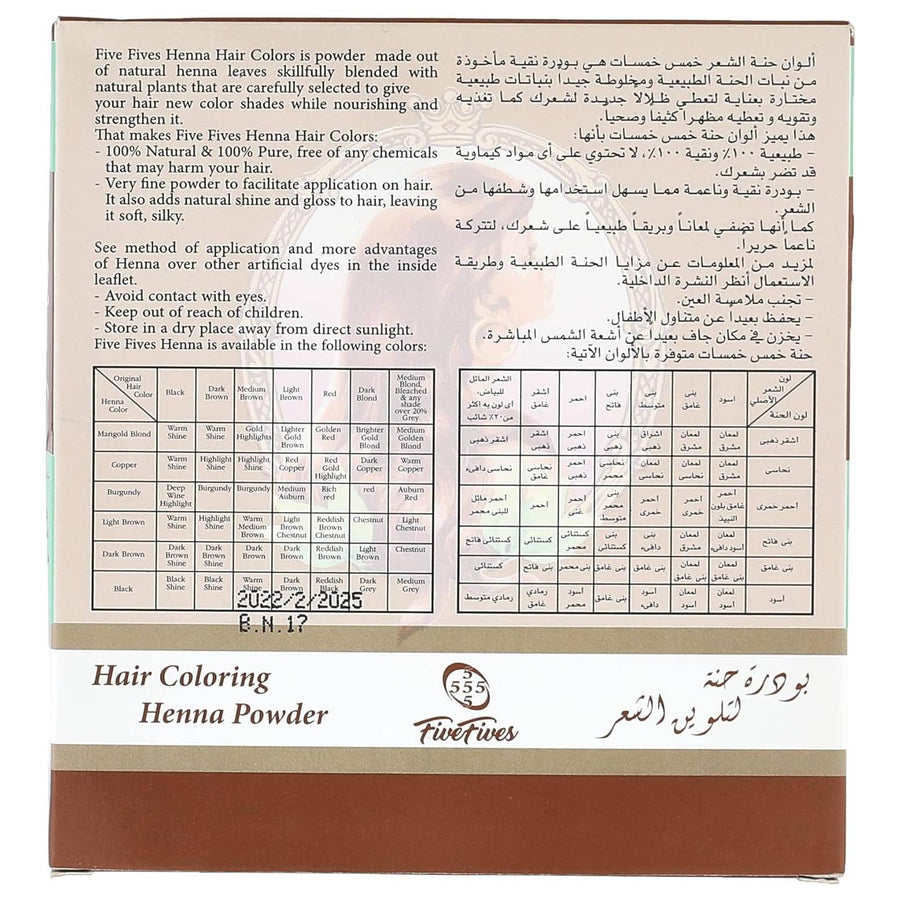 Five Fives Henna Hair Colors is powder made out
of natural henna leaves skillfully blended with
natural plants that are carefully selected to give
your hair new color shades while nourishing and
strengthen it.
That makes Five Fives Henna Hair Colors:
- 100% Natural & 100% Pure, free of any chemicals
that may harm your hair.
- Very fine powder to facilitate application on hair.
It also adds natural shine and gloss to hair, leaving
it soft, silky.
See method of application and more advantages
of Henna over other artificial dyes in the inside
leaflet.
- Avoid contact with eyes.
- Keep out of reach of children.
- Store in a dry place away from direct sunlight.
Five Fives Henna is available in the following colors:
ألوان حنة الشعر خمس خمسات هي بودرة نقية مأخوذة
من نبات الحنة الطبيعية ومخلوطة جيداً بنباتات طبيعية
مختارة بعناية لتعطي ظلالا جديدة لشعرك كما تغذيه
وتقويه و تعطيه مظهرا كثيفا وصحيا.
هذا يميز ألوان حنة خمس خمسات بأنها:
- طبيعية ١٠٠٪ ونقية ١٠٠٪، لا تحتوي على أى مواد كيماوية
قد تضر بشعرك.
- بودرة نقية وناعمة مما يسهل استخدامها وشطفها من
الشعر.
كما أنها تضفي لمعاناً وبريقاً طبيعياً على شعرك، لتتركة
ناعما حريرا.
لمزيد من المعلومات عن مزايا الحنة الطبيعية وطريقة
الاستعمال أنظر النشرة الداخلية.
- تجنب ملامسة العين.
- يحفظ بعيداً عن متناول الأطفال.
- يخزن في مكان جاف بعيداً عن أشعة الشمس المباشرة.
حنة خمس خمسات متوفرة بالألوان الآتية:
Original Hair Color Henna Color Black Dark Brown Medium Brown Light Brown Red Dark Blond Medium Blond, Bleached & any shade over 20% Grey
Marigold Blond Warm Shine Warm Shine Gold Highlights Lighter Gold Brown Golden Red Brighter Gold Blond Medium Golden Blond
Copper Warm Shine Highlight Shine Highlight Shine Red Copper Red Gold Highlight Dark Copper Warm Copper
Burgundy Deep Wine Highlight Burgundy Burgundy Medium Auburn Rich red red Auburn Red
Light Brown Warm Shine Highlight Shine Warm Medium Brown Light Brown Chestnut Reddish Brown Chestnut Chestnut Light Chestnut
Dark Brown Dark Brown Shine Dark Brown Shine Dark Brown Dark Brown Reddish Brown Light Brown Chestnut
Black Black Shine Black Shine Warm Shine Dark Brown Reddish Black Dark Grey Medium Grey
2022/2/2025
B.N.17
لون الشعر الأصلي لون الحنة اسود بنى غامق بنى متوسط بنى فاتح احمر اشقر غامق الشعر المائل للبياض، أى لون به اكثر من ٢٠٪ شائب
اشقر ذهبى لمعان مشرق لمعان مشرق اشراق ذهبى بنى ذهبى احمر ذهبى اشقر ذهبى اشقر ذهبى
نحاسى لمعان مشرق لمعان نحاسى لمعان نحاسى نحاسى محمر احمر ذهبى نحاسى غامق نحاسى دافىء
احمر خمرى احمر غامق بلون النبيذ احمر خمرى احمر خمرى بنى محمر متوسط احمر غنى احمر احمر مائل للبنى محمر
بنى فاتح لمعان أسود دافىء لمعان مشرق بنى دافىء بنى كستنائى كستنائى محمر كستنائى كستنائى فاتح
بنى غامق لمعان بنى غامق لمعان بنى غامق بنى غامق بنى غامق بنى محمر بنى فاتح كستنائى
أسود لمعان أسود لمعان أسود أسود دافىء بنى غامق أسود محمر رمادي غامق رمادي متوسط
Hair Coloring
Henna Powder
5
555
5
FiveFives
بودرة حنة
لتلوين الشعر